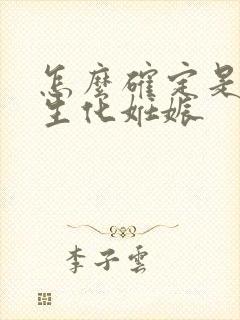 怎麼確定是
生化妊娠
李子雲